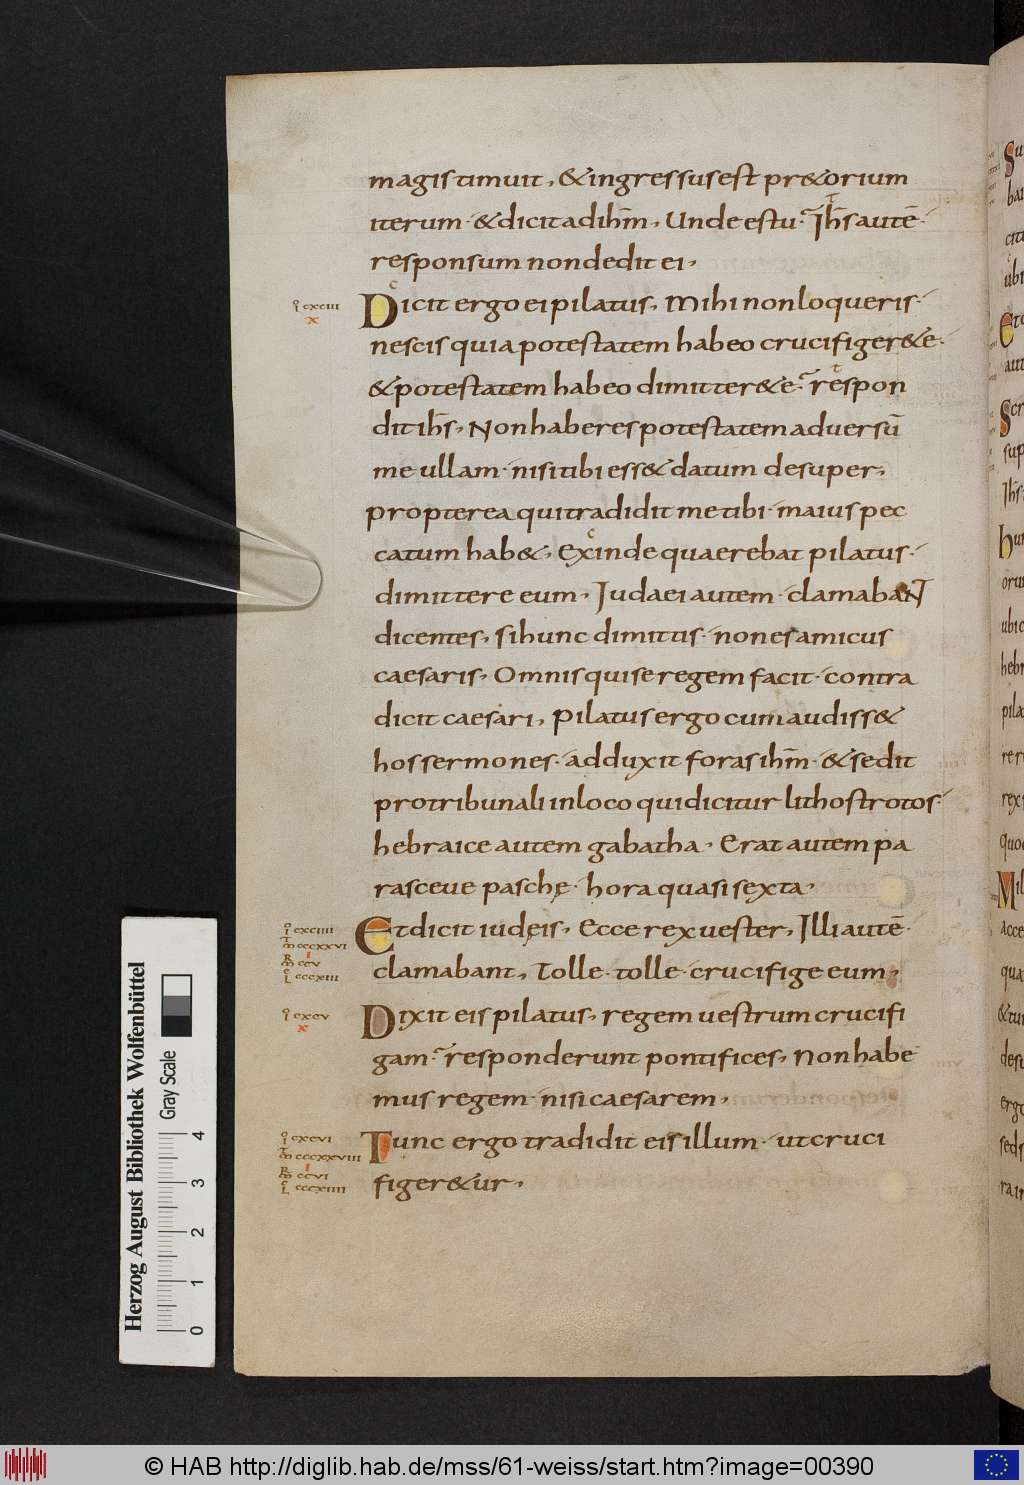 magis timuit, & ingressus est pr&orium
iterum · & dicit ad ihm̄, Unde es tu · Ihs̄ autē ·
responsum non dedit ei,
Dicit ergo ei pilatus, Mihi non loqueris ·
nescis quia potestatem habeo crucifiger& e ·
& potestatem habeo dimitter& e · respon
dit ihs̄, Non haberes potestatem adversū
me ullam · nisi tibi ess& datum desuper,
propterea qui tradidit me tibi · maius pec
catum hab&, Exinde quaerebat pilatus ·
dimittere eum, Judaei autem · clamabant
dicentes, si hunc dimittis · non es amicus
caesaris, Omnis qui se regem facit · contra
dicit caesari, Pilatus ergo cum audiss&
hos sermones · adduxit foras ihm̄ · & sedit
pro tribunali in loco qui dicitur lithostrotos ·
hebraice autem gabatha · Erat autem pa
rasceue paschę · hora quasi sexta,
Et dicit iudęis, Ecce rex uester, Illi autē ·
clamabant, Tolle · tolle · crucifige eum,
Dixit eis pilatus, regem uestrum crucifi
gam · responderunt pontifices, Non habe
mus regem · nisi caesarem,
Tunc ergo tradidit eis illum · ut cruci
figer&ur,
cxciii
x
cxciiii
cccxxvi
i
ccv
cccxiii
cxcv
x
cxcvi
cccxxviii
i
ccvi
cccxiiii
Herzog August Bibliothek Wolfenbüttel
Gray Scale
0 1 2 3 4
© HAB http://diglib.hab.de/mss/61-weiss/start.htm?image=00390